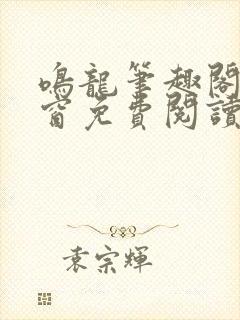 鳴龍筆趣閣
窗免費閱讀
袁宗輝